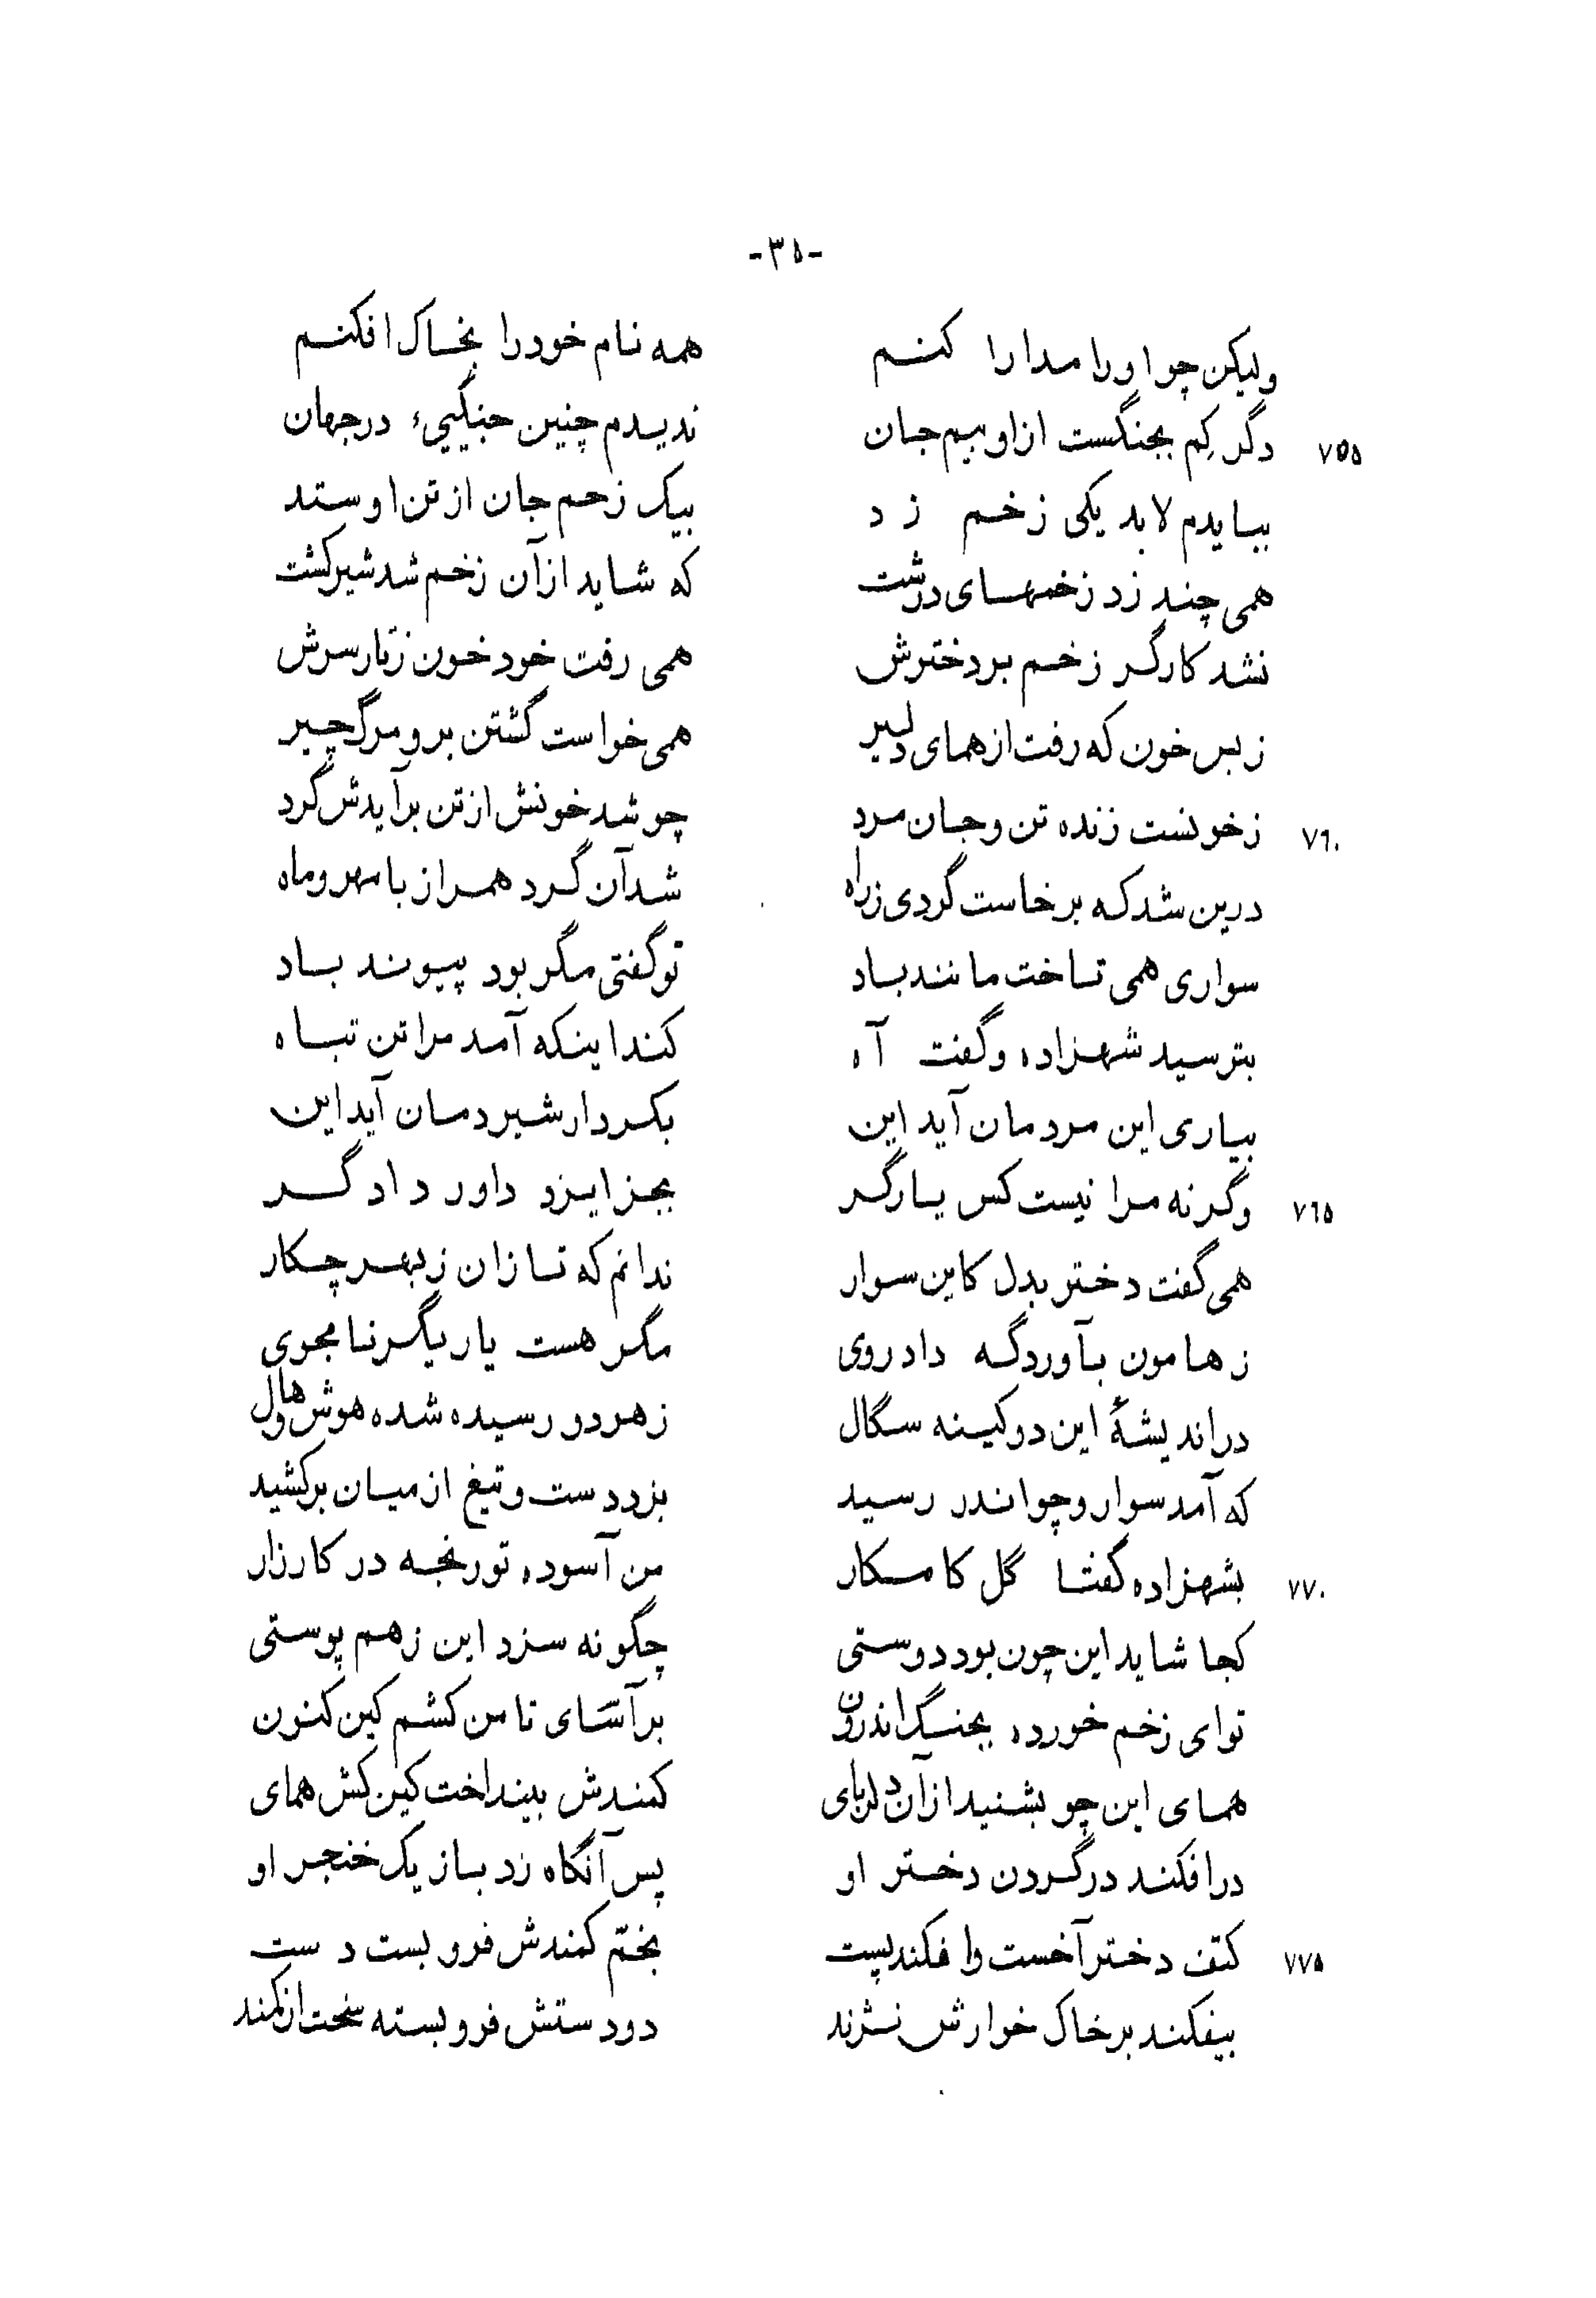 -۳۵-
ولیکن چو اورا مدارا کنم همه نام خودرا بخاک افکنم
۷۵۵ دگر کِم بجنگست ازاو بیم جان ندیدم چنین جنگییء درجهان
ببایدم لابد یکی زخم زد بیک زخم جان از تن او ستد
همی چند زد زخمهای درشت که شاید ازآن زخم شد شیرکشت
نشد کارگر زخم بردخترش همی رفت خود خون زتارسرش
زبس خون که رفت ازهمای دلیر همی خواست گشتن برو مرگ چیر
۷٦۰ زخونست زنده تن وجان مرد چو شد خونش ازتن برآیدش گرد
درین شد که برخاست گردی زراه شدآن گرد همراز با مهر وماه
سواری همی تاخت مانند باد تو گفتی مگر بود پیوند باد
بترسید شهزاده وگفت آه کند اینکه آمد مرا تن تباه
بیاری این مردمان آید این بکردار شیر دمان آید این
۷٦۵ وگرنه مرا نیست کس یارگر بجز ایزد داور دادگر
همی گفت دختر بدل کاین سوار ندانم که تازان زبهر چکار
زهامون بآوردگه داد روی مگر هست یاریگر نامجوی
در اندیشهٔ این دو کینه سگال زهردو رسیده شده هوش وهال
که آمد سوار وچو اندر رسید بزد دست وتیغ ازمیان برکشید
۷۷۰ بشهزاده گفتا گل کامکار من آسوده، تو رنجه در کارزار
کجا شاید این چون بود دوستی چگونه سزد این زهم پوستی
توای زخم خورده بجنگ اندرون برآسَای تا من کشم کین کنون
همای این چو بشنید ازآن دلربای کمندش بینداخت کین کش همای
درافکند درگردن دختر او پس آنگاه زد باز یک خنجر او
۷۷۵ کتف دختر آخست وافکند پست بخمّ کمندش فرو بست دست
بیفکند برخاک خوارش نژند دو دستش فرو بسته سخت ازکمند